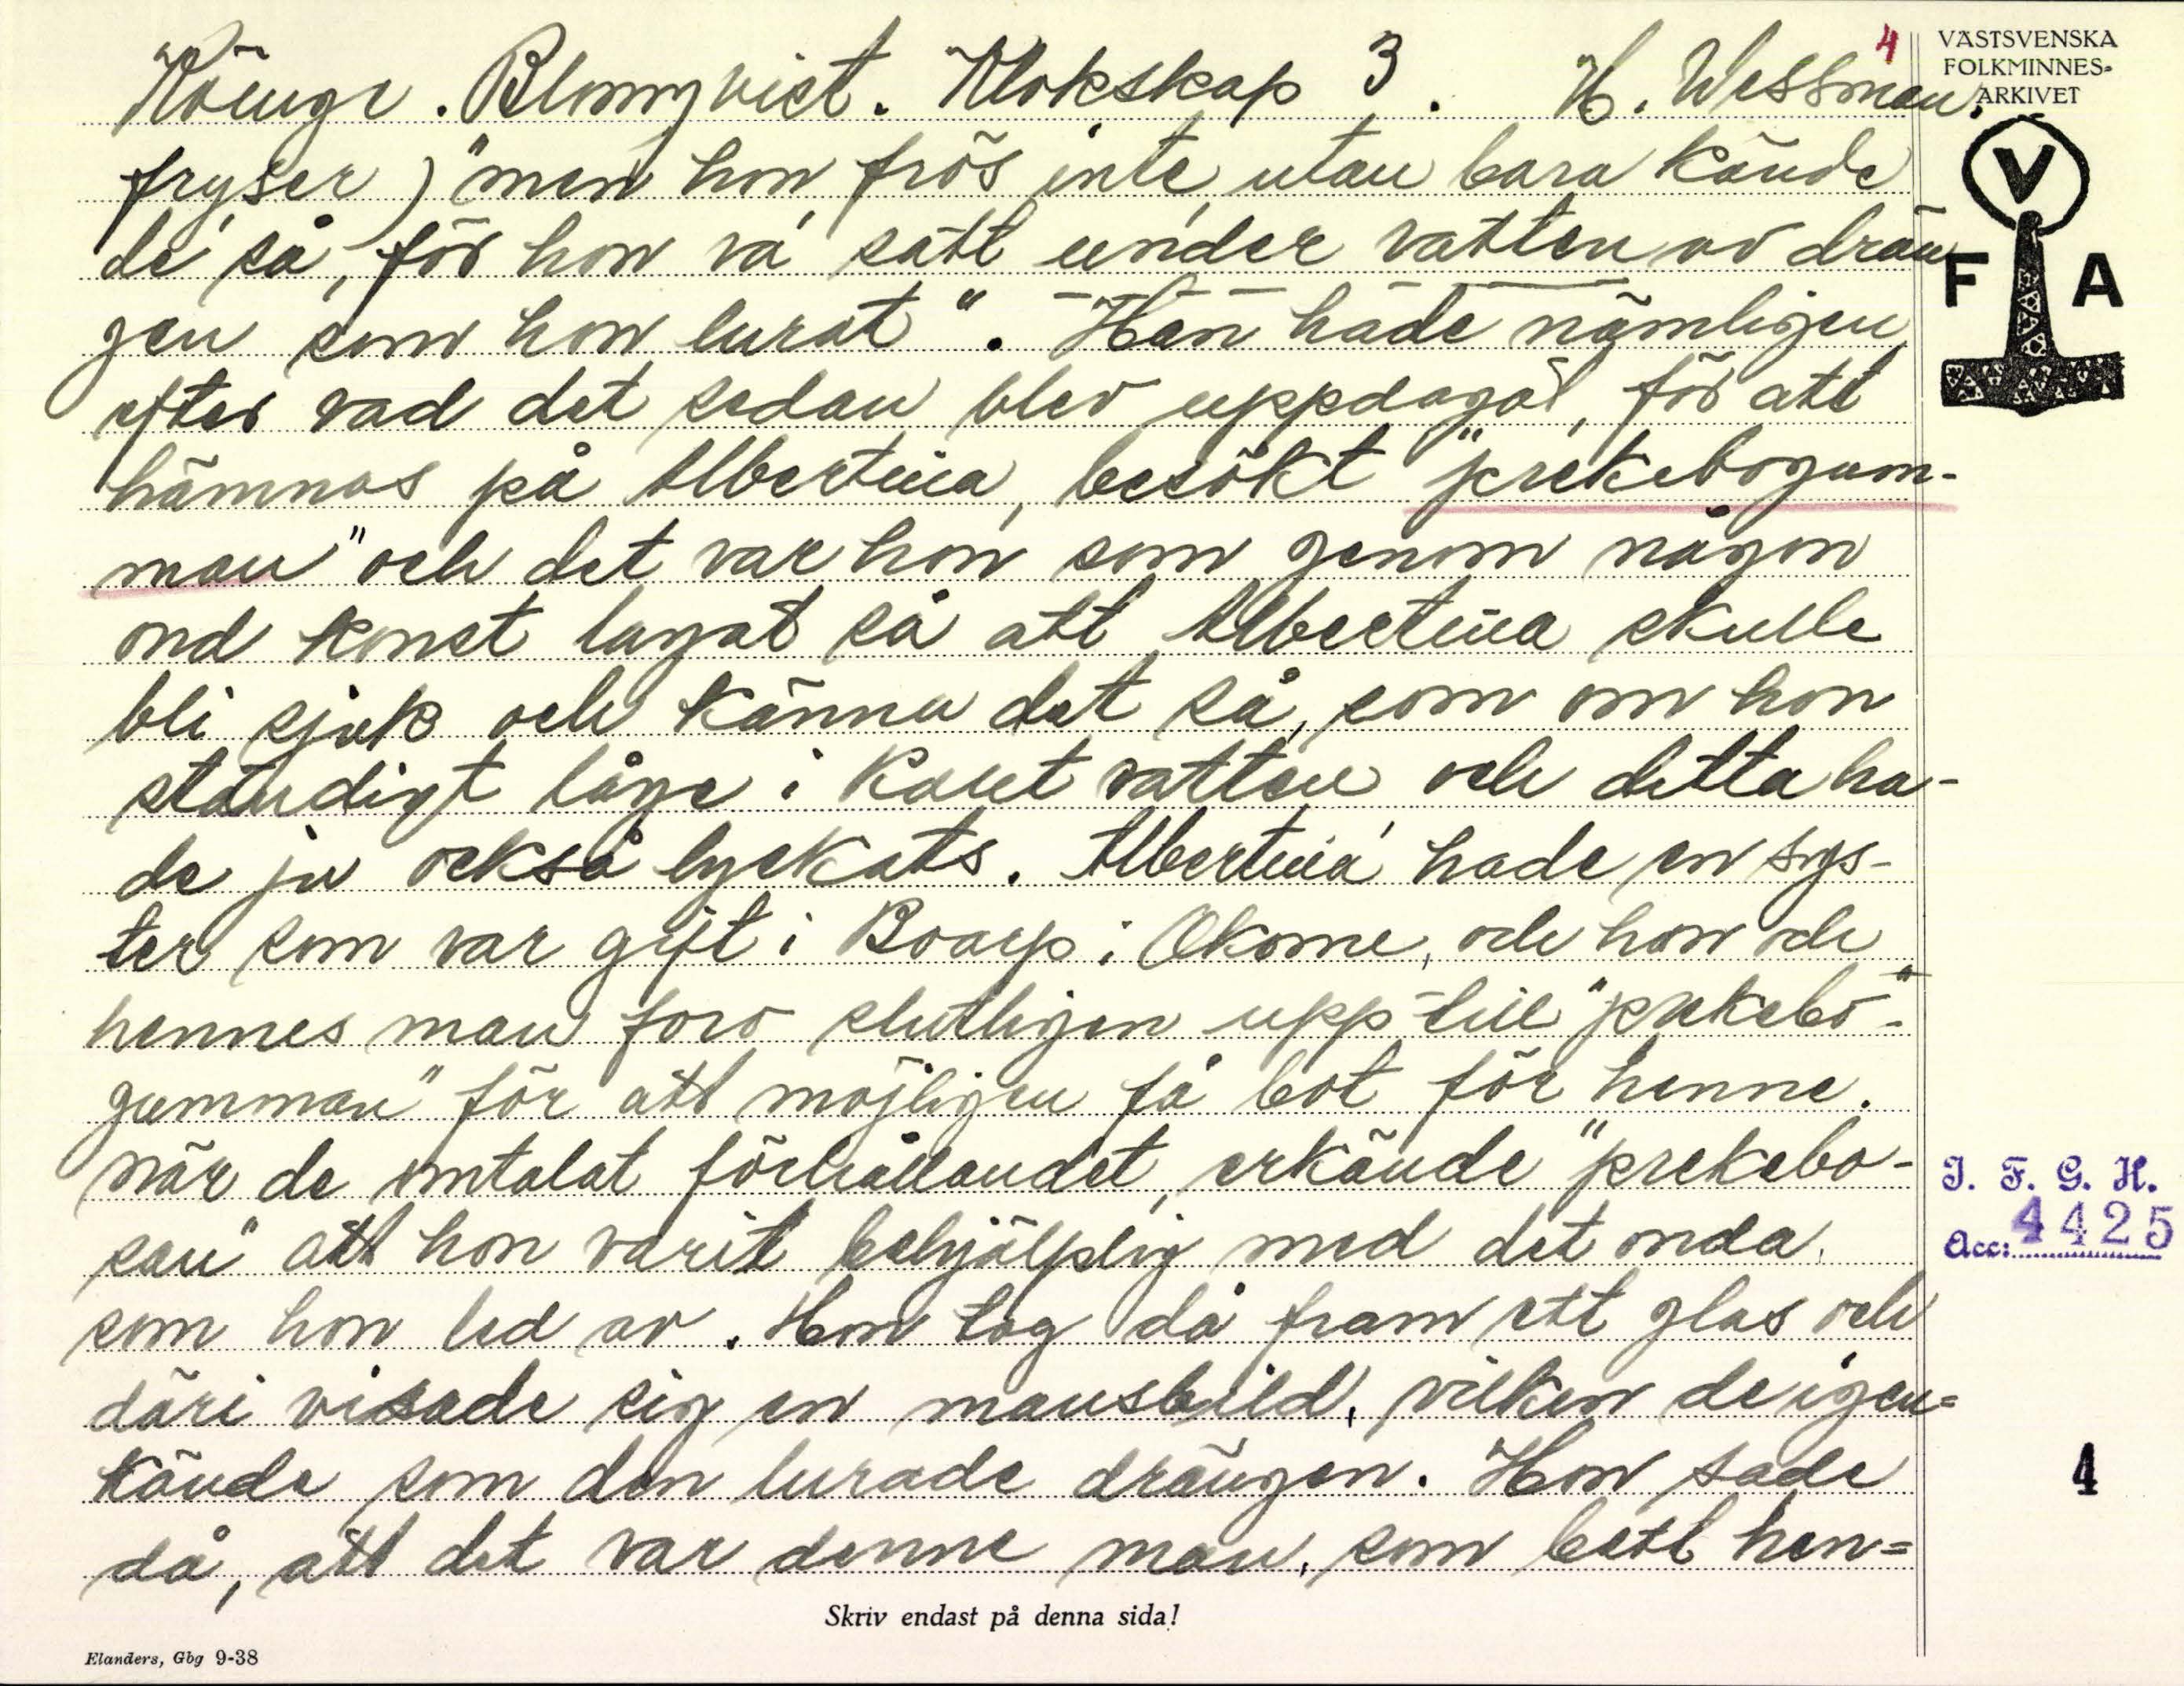 Köinge. Blomqvist. Klokskap 3. H. Wessman.
4
VÄSTSVENSKA
FOLKMINNES-
ARKIVET
V
F A
fryser) "men hon frös inte, utan bara kände
de' så, för hon va' satt under vatten av drän
gen som hon lurat". Han hade nämligen
efter vad det sedan blev uppdagat, för att
hämnas på Albertina, besökt "prekebogum-
man" och det var hon som genom någon
ond konst lagat så att Albertina skulle
bli sjuk och känna det så, som om hon
ständigt låge i kallt vatten, och detta ha-
de ju också lyckats. Albertina hade en sys-
ter som var gift i Boarp i Okome, och hon och
hennes man foro slutligen upp till "prekebo"-
gumman" för att möjligen få bot för henne.
När de omtalat förhållandet, erkände "prekebo-
san" att hon varit behjälplig med det onda,
som hon led av. Hon tog då fram ett glas och
däri visade sig en mansbild, vilken de igen=
kände som den lurade drängen. Hon sade
då, att det var denne man, som bett hen=
I. F. G. H.
Acc: 4425
4
Skriv endast på denna sida!
Elanders, Gbg 9-38